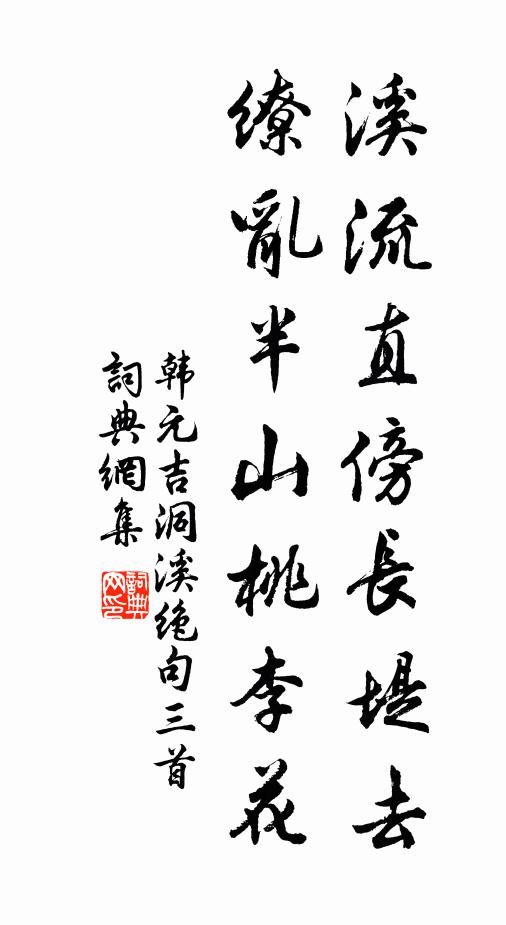 溪流直傍長堤去
繚亂半山桃李花
韩元吉洞溪绝句三首
詞典網集
詞典网印